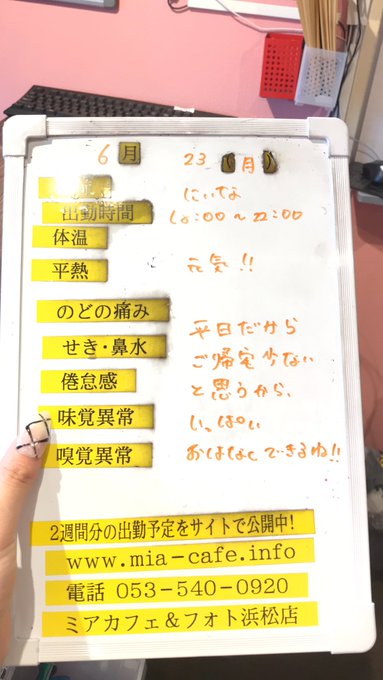 6月 23（月）
にいな
出勤時間 18:00〜22:00
体温
平熱 元気!!
のどの痛み
せき・鼻水
倦怠感
味覚異常
嗅覚異常
平日だから
ご帰宅少ない
と思うから、
いっぱい
おはなしできるね!!
2週間分の出勤予定をサイトで公開中!
www.mia-cafe.info
電話 053-540-0920
ミアカフェ&フォト浜松店